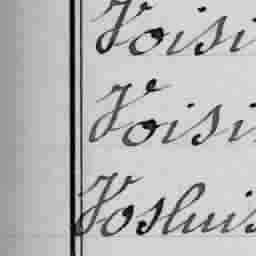 Voisi
Voisi
Vosluis